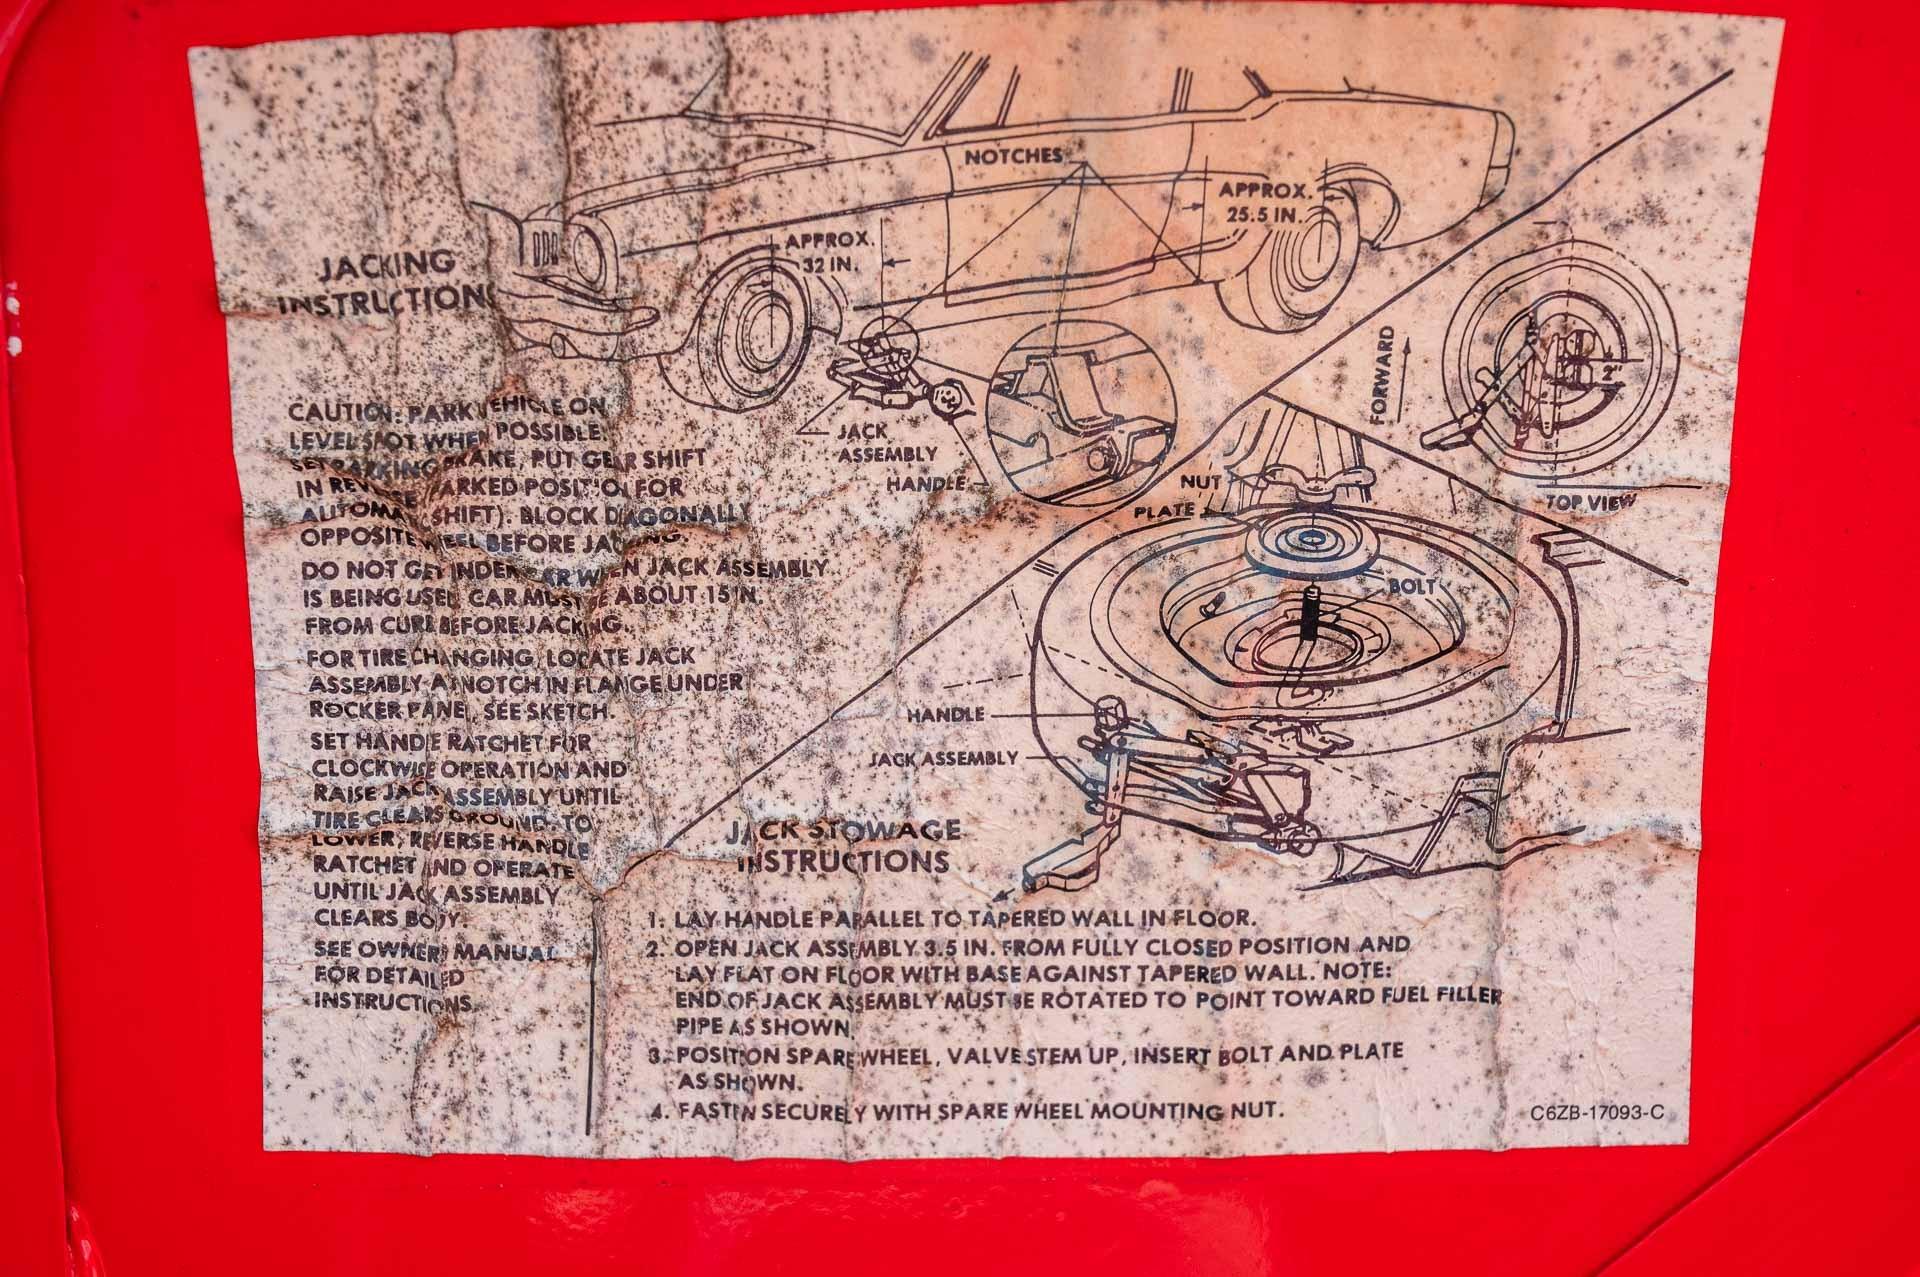 JACKING
INSTRUCTIONS
NOTCHES
APPROX.
25.5 IN.
APPROX.
32 IN.
JACK
ASSEMBLY
HANDLE
FORWARD
2"
TOP VIEW
CAUTION: PARK VEHICLE ON
LEVEL SPOT WHEN POSSIBLE.
SET PARKING BRAKE, PUT GEAR SHIFT
IN REVERSE PARKED POSITION FOR
AUTOMATIC SHIFT). BLOCK DIAGONALLY
OPPOSITE WHEEL BEFORE JACKING.
DO NOT GET UNDER CAR WHEN JACK ASSEMBLY
IS BEING USED. CAR MUST BE ABOUT 15 IN.
FROM CURB BEFORE JACKING.
FOR TIRE CHANGING, LOCATE JACK
ASSEMBLY AT NOTCH IN FLANGE UNDER
ROCKER PANEL, SEE SKETCH.
SET HANDLE RATCHET FOR
CLOCKWISE OPERATION AND
RAISE JACK ASSEMBLY UNTIL
TIRE CLEARS GROUND. TO
LOWER, REVERSE HANDLE
RATCHET AND OPERATE
UNTIL JACK ASSEMBLY
CLEARS BODY.
SEE OWNERS MANUAL
FOR DETAILED
INSTRUCTIONS.
NUT
PLATE
BOLT
HANDLE
JACK ASSEMBLY
JACK STOWAGE
INSTRUCTIONS
1. LAY HANDLE PARALLEL TO TAPERED WALL IN FLOOR.
2. OPEN JACK ASSEMBLY 3.5 IN. FROM FULLY CLOSED POSITION AND
LAY FLAT ON FLOOR WITH BASE AGAINST TAPERED WALL. NOTE:
END OF JACK ASSEMBLY MUST BE ROTATED TO POINT TOWARD FUEL FILLER
PIPE AS SHOWN.
3. POSITION SPARE WHEEL, VALVE STEM UP, INSERT BOLT AND PLATE
AS SHOWN.
4. FASTEN SECURELY WITH SPARE WHEEL MOUNTING NUT.
C6ZB-17093-C